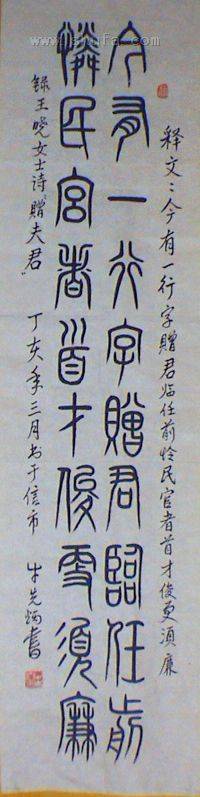 释文：今有一行字贈君临任前怜民官者首才俊更須廉
今有一行字贈君臨任前
憐民官者首才俊更須廉
録王晓女士诗"贈夫君" 丁亥年三月书于信市 牛先炳書